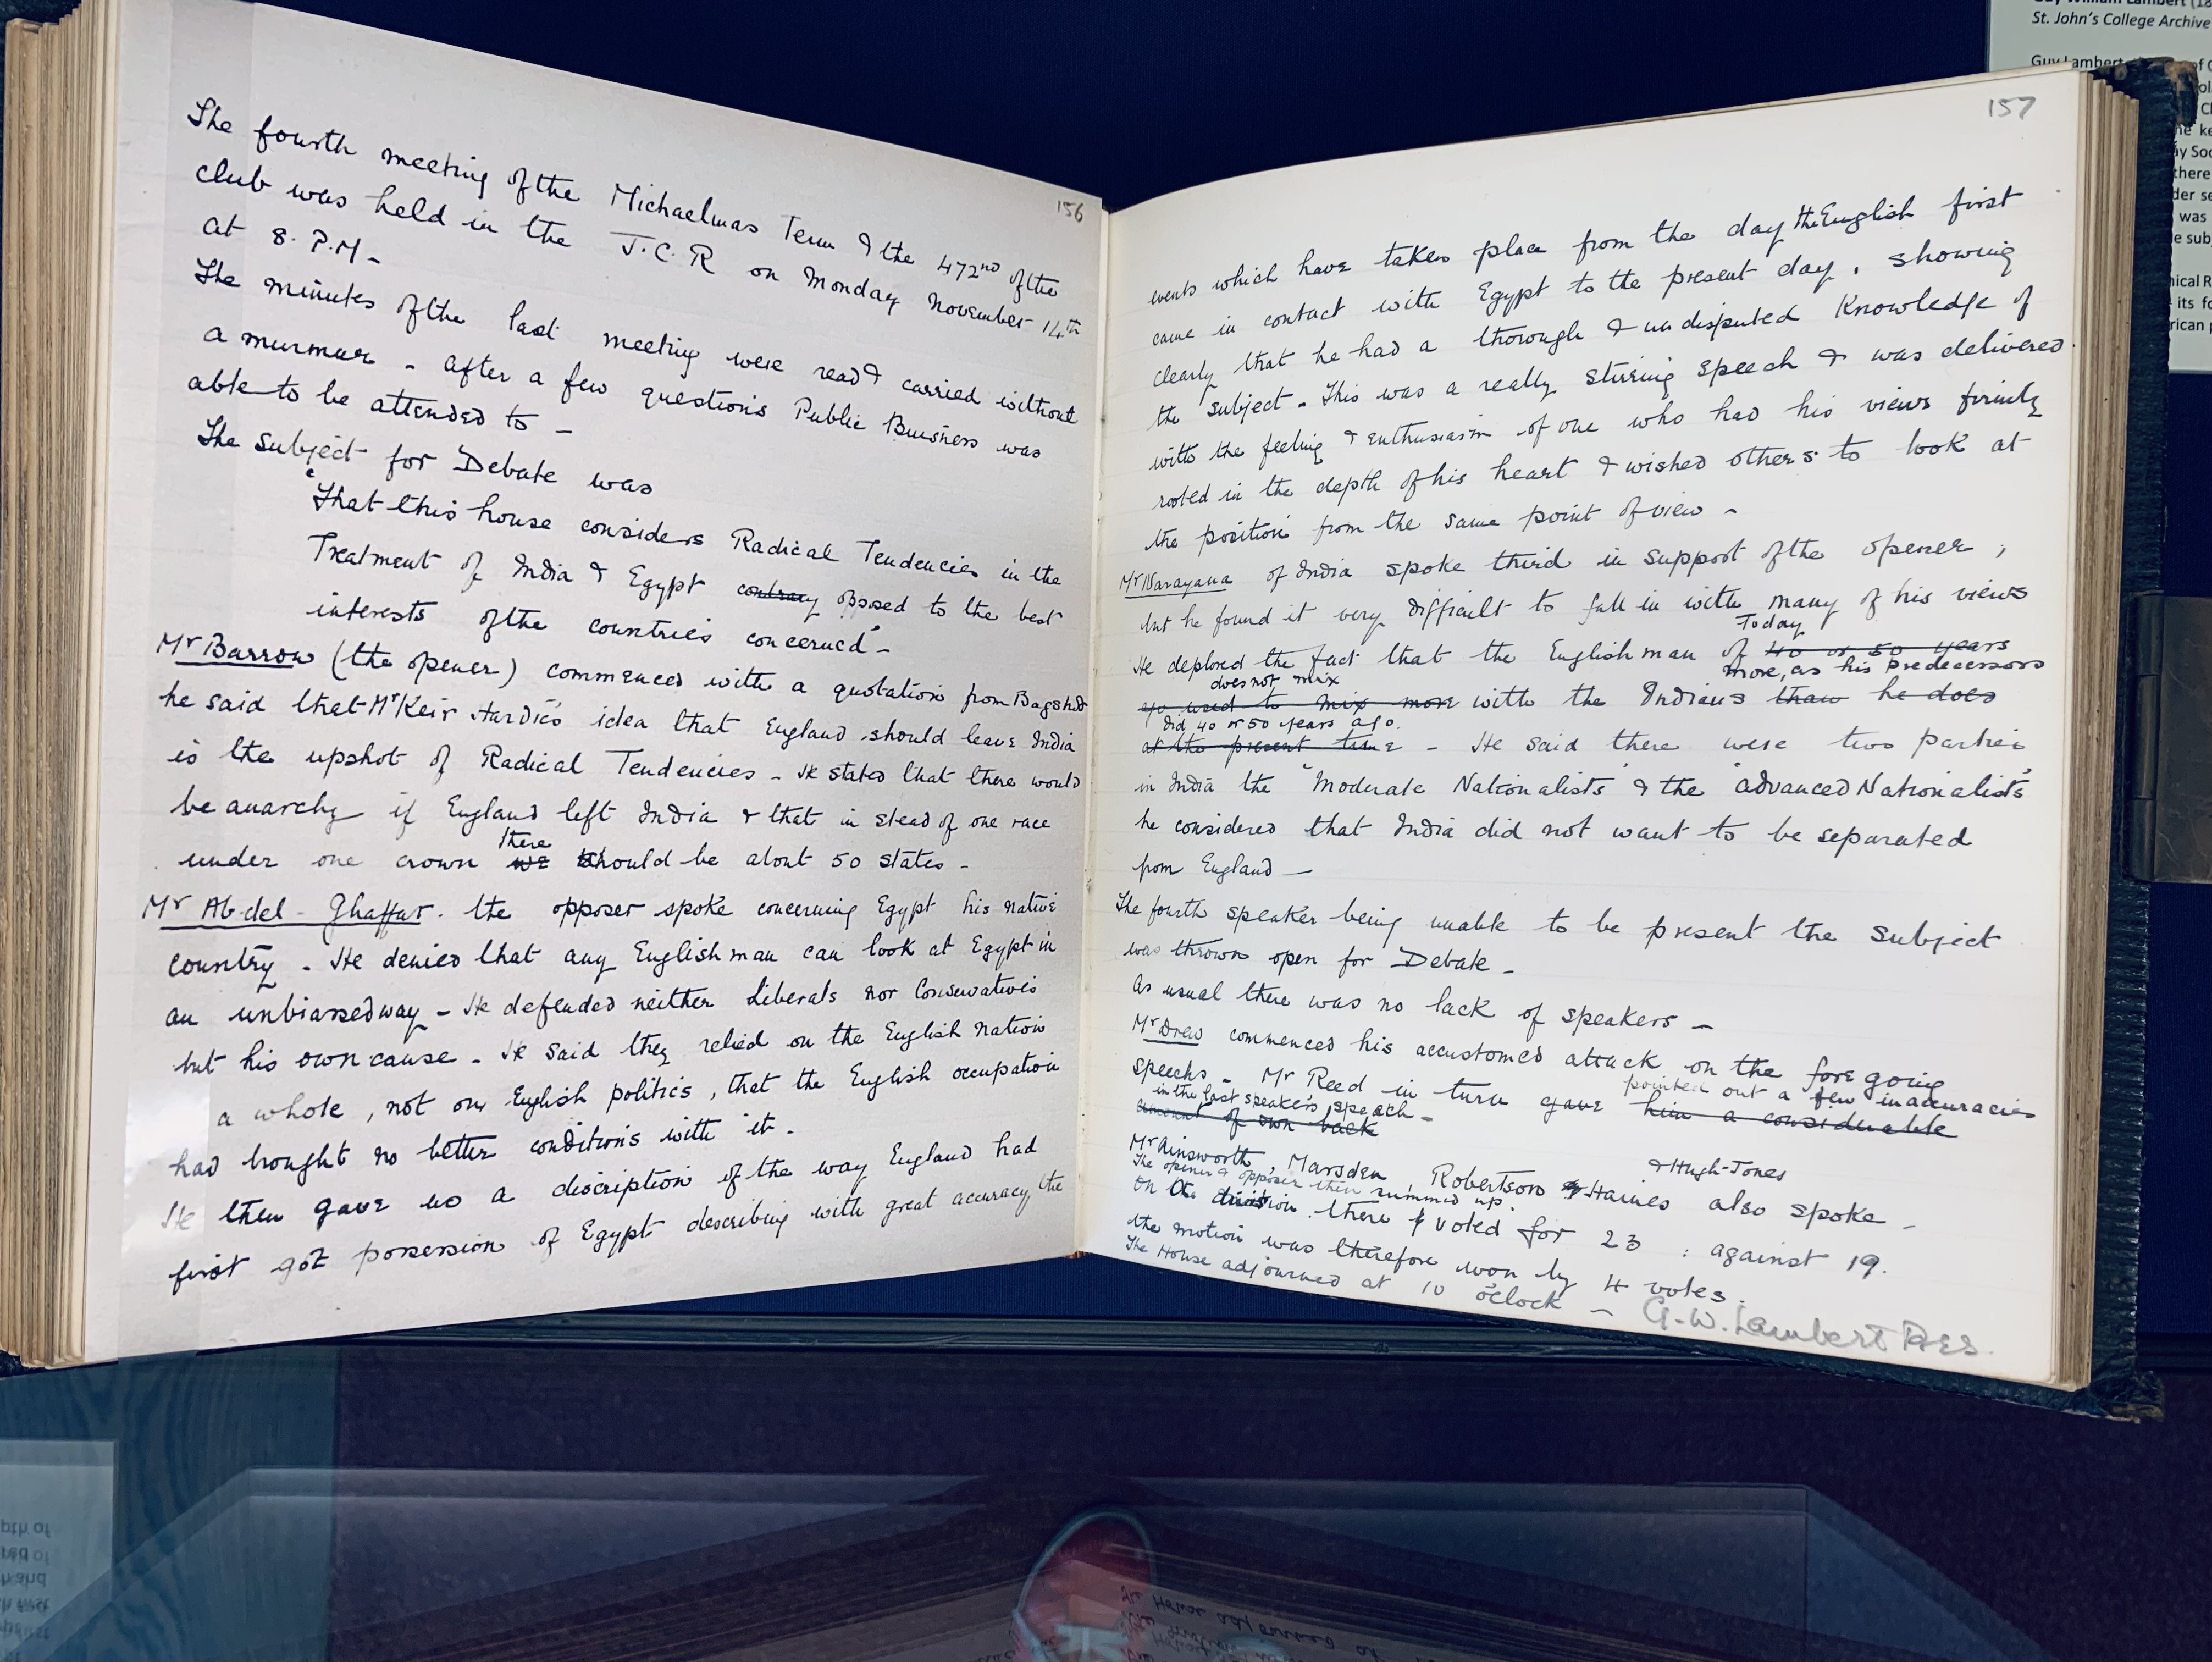 156
The fourth meeting of the Michaelmas Term & the 472nd of the
club was held in the J.C.R on Monday November 14th
at 8. P.M -
The minutes of the last meeting were read & carried without
a murmur - after a few questions Public Buisness was
able to be attended to -
The subject for Debate was
"That this house considers Radical Tendencies in the
Treatment of India & Egypt contrary opposed to the best
interests of the countries concerned" -
Mr Barrow (the opener) commenced with a quotation from Bagshot
he said that Mr Keir Hardie's idea that England should leave India
is the upshot of Radical Tendencies - He stated that there would
be anarchy if England left India & that in stead of one race
there
under one crown we should be about 50 states -
Mr Ab-del-Ghaffar. the opposer spoke concerning Egypt his native
country - He denied that any Englishman can look at Egypt in
an unbiassed way - He defended neither Liberals nor Conservatives
but his own cause - He said they relied on the English nation
a whole, not on English politics, that the English occupation
had brought no better conditions with it -
He then gave us a discription of the way England had
first got possession of Egypt describing with great accuracy the
157
events which have taken place from the day the English first
came in contact with Egypt to the present day, showing
clearly that he had a thorough & undisputed Knowledge of
the subject - This was a really stirring speech & was delivered
with the feeling & enthusiasm of one who had his views firmly
rooted in the depth of his heart & wished others to look at
the position from the same point of view -
Mr Narayana of India spoke third in support of the opener,
but he found it very difficult to fall in with many of his views
Today
He deplored the fact that the Englishman of 40 or 50 years
does not mix more, as his predecessors
ago used to mix more with the Indians than he does
did 40 or 50 years ago.
at the present time - He said there were two parties
in India the "Moderate Nationalists" & the "advanced Nationalists"
he considered that India did not want to be separated
from England -
The fourth speaker being unable to be present the subject
was thrown open for Debate -
As usual there was no lack of speakers -
Mr Drew commenced his accustomed attack on the fore going
speechs - Mr Reed in turn gave him a considerable
pointed out a few inaccuracies
in the last speaker's speech -
amount of own back
Mr Ainsworth, Marsden, Robertson & Haines & Hugh-Jones also spoke -
The opener & opposer then summed up.
On the division there voted for 23 : against 19.
the motion was therefore won by 4 votes.
The House adjourned at 10 o'clock -
G.W. Lambert Pres.
St. John's College Archive